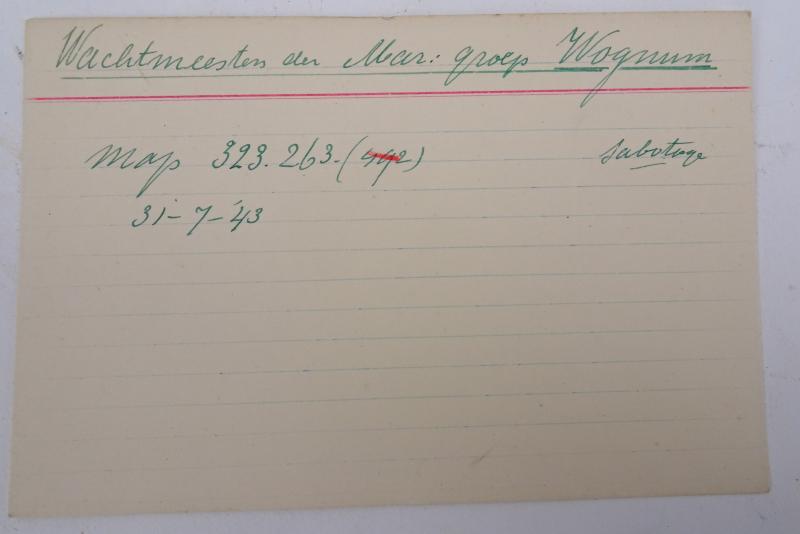 Wachtmeesters der Mar: groep Wognum
map 323.263.(492) sabotage
31-7-'43